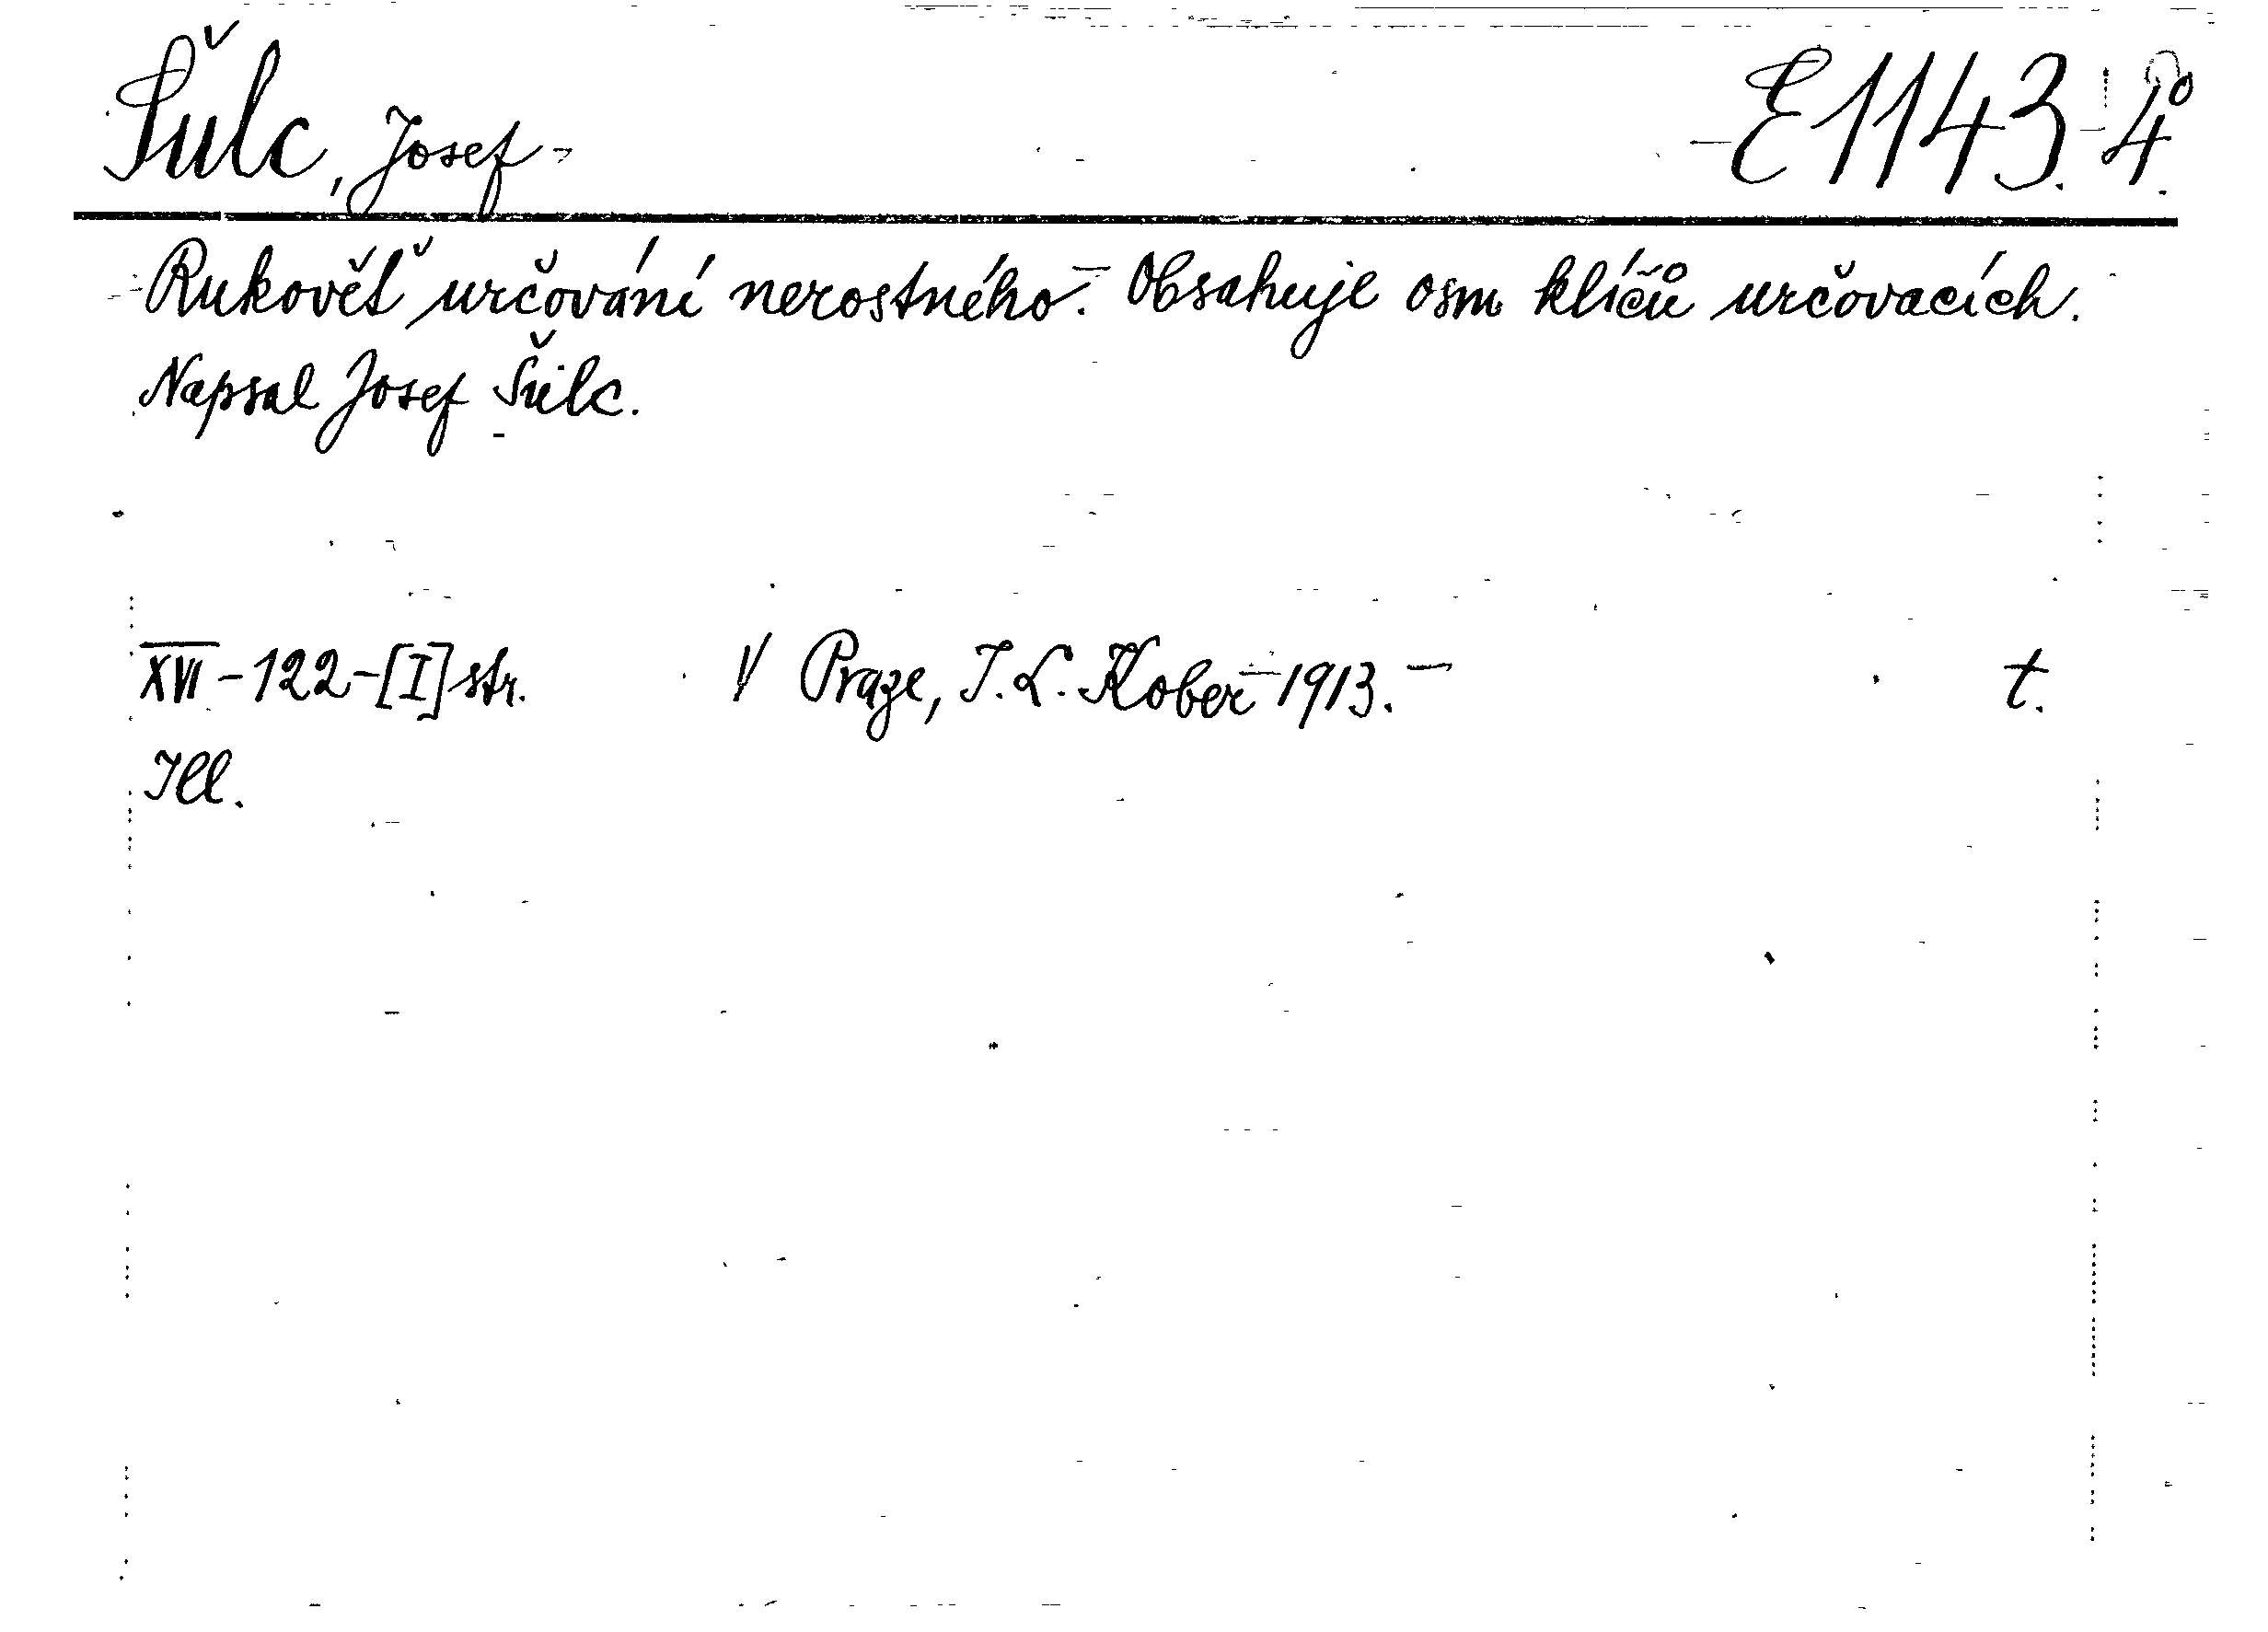 Šulc, Josef E 1143. 4°.
Rukověť určování nerostného. Obsahuje osm klíčů určovacích.
Napsal Josef Šulc.
XVI-122-[I] str. V Praze, I. L. Kober 1913. t.
Ill.